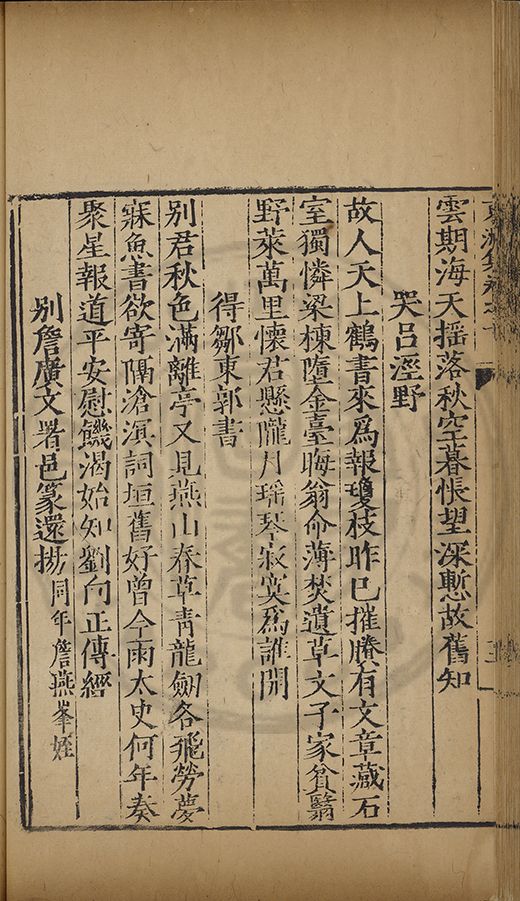 雲期海天揺落秋空暮悵望深慙故舊知
哭呂涇野
故人天上鶴書來爲報瓊枝昨已摧賸有文章藏石
室獨憐梁棟墮金臺晦翁命薄焚遺草文子家貧翳
野萊萬里懷君懸隴月瑶琴寂寞爲誰開
得鄒東郭書
别君秋色滿離亭又見燕山春草青龍劒各飛勞夢
寐魚書欲寄隔滄溟詞垣舊好曾今雨太史何年奏
聚星報道平安慰饑渴始知劉向正傳經
别詹廣文署邑篆還揚同年詹燕峯姪